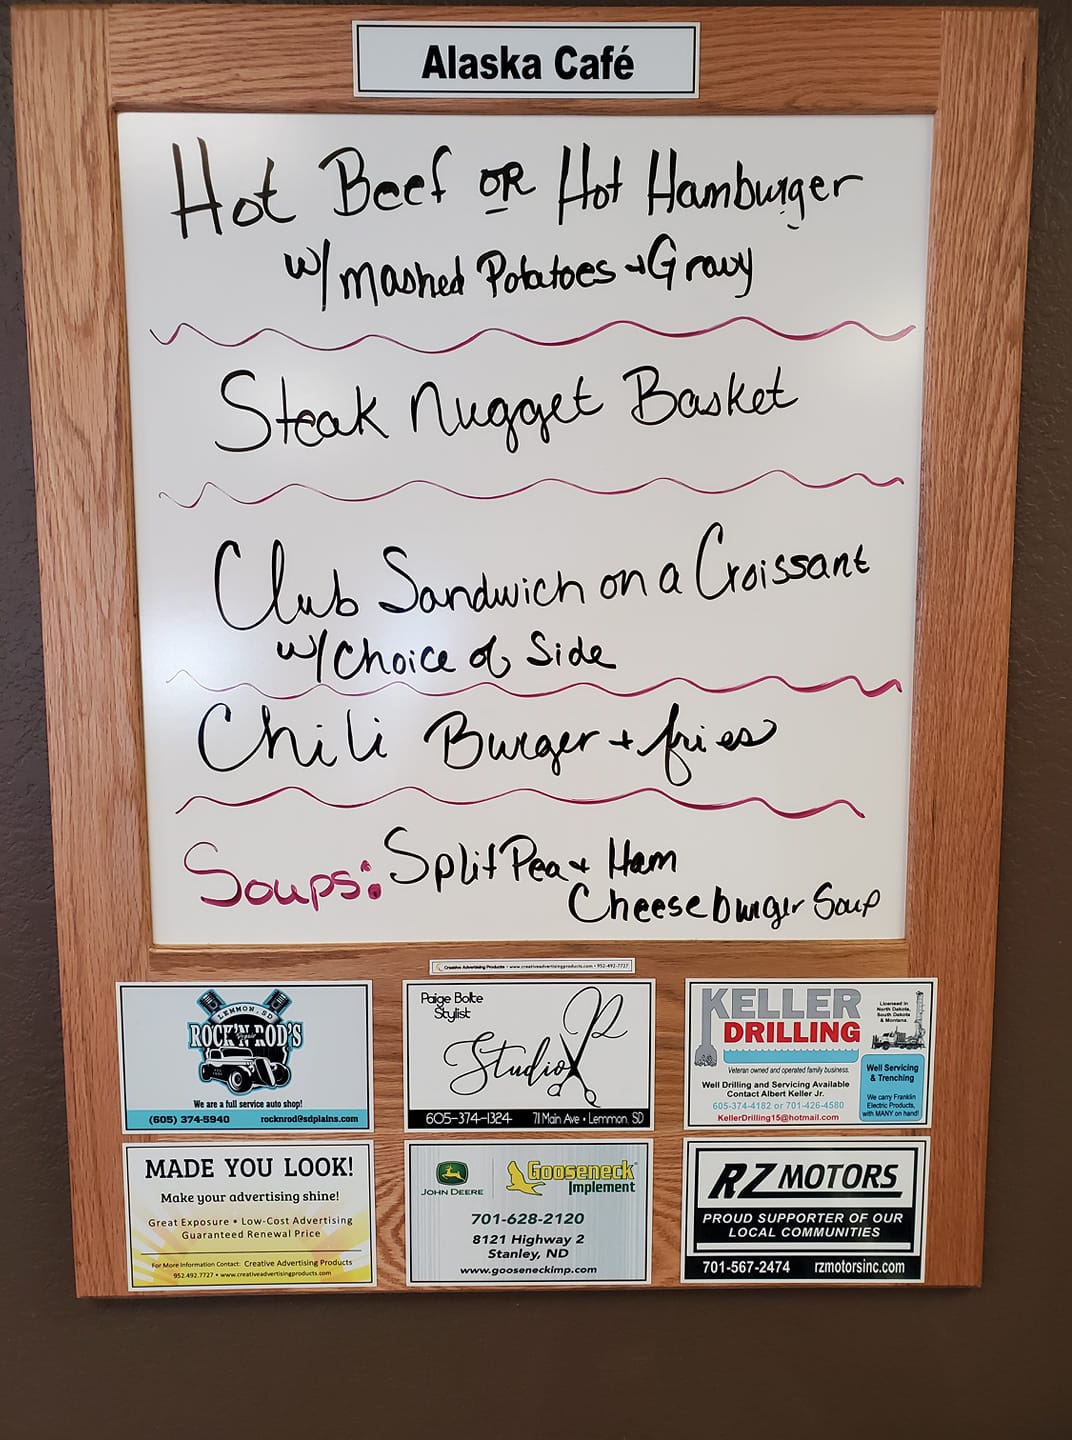 Alaska Café
Hot Beef OR Hot Hamburger
w/ mashed Potatoes + Gravy
Steak Nugget Basket
Club Sandwich on a Croissant
w/ Choice of Side
Chili Burger + fries
Soups: Split Pea + Ham
Cheeseburger Soup
Creative Advertising Products • www.creativeadvertisingproducts.com • 952-492-7727
LEMMON, SD
ROCK'N ROD'S
Repair
We are a full service auto shop!
(605) 374-5940 rocknrod@sdplains.com
Paige Bolte
Stylist
Studio P
605-374-1324 71 Main Ave • Lemmon, SD
KELLER
DRILLING
Licensed in
North Dakota,
South Dakota
& Montana.
Veteran owned and operated family business.
Well Drilling and Servicing Available
Contact Albert Keller Jr.
605-374-4182 or 701-426-4580
KellerDrilling15@hotmail.com
Well Servicing
& Trenching
We carry Franklin
Electric Products,
with MANY on hand!
MADE YOU LOOK!
Make your advertising shine!
Great Exposure • Low-Cost Advertising
Guaranteed Renewal Price
For More Information Contact: Creative Advertising Products
952.492.7727 • www.creativeadvertisingproducts.com
JOHN DEERE
Gooseneck
Implement
701-628-2120
8121 Highway 2
Stanley, ND
www.gooseneckimp.com
RZ MOTORS
PROUD SUPPORTER OF OUR
LOCAL COMMUNITIES
701-567-2474 rzmotorsinc.com